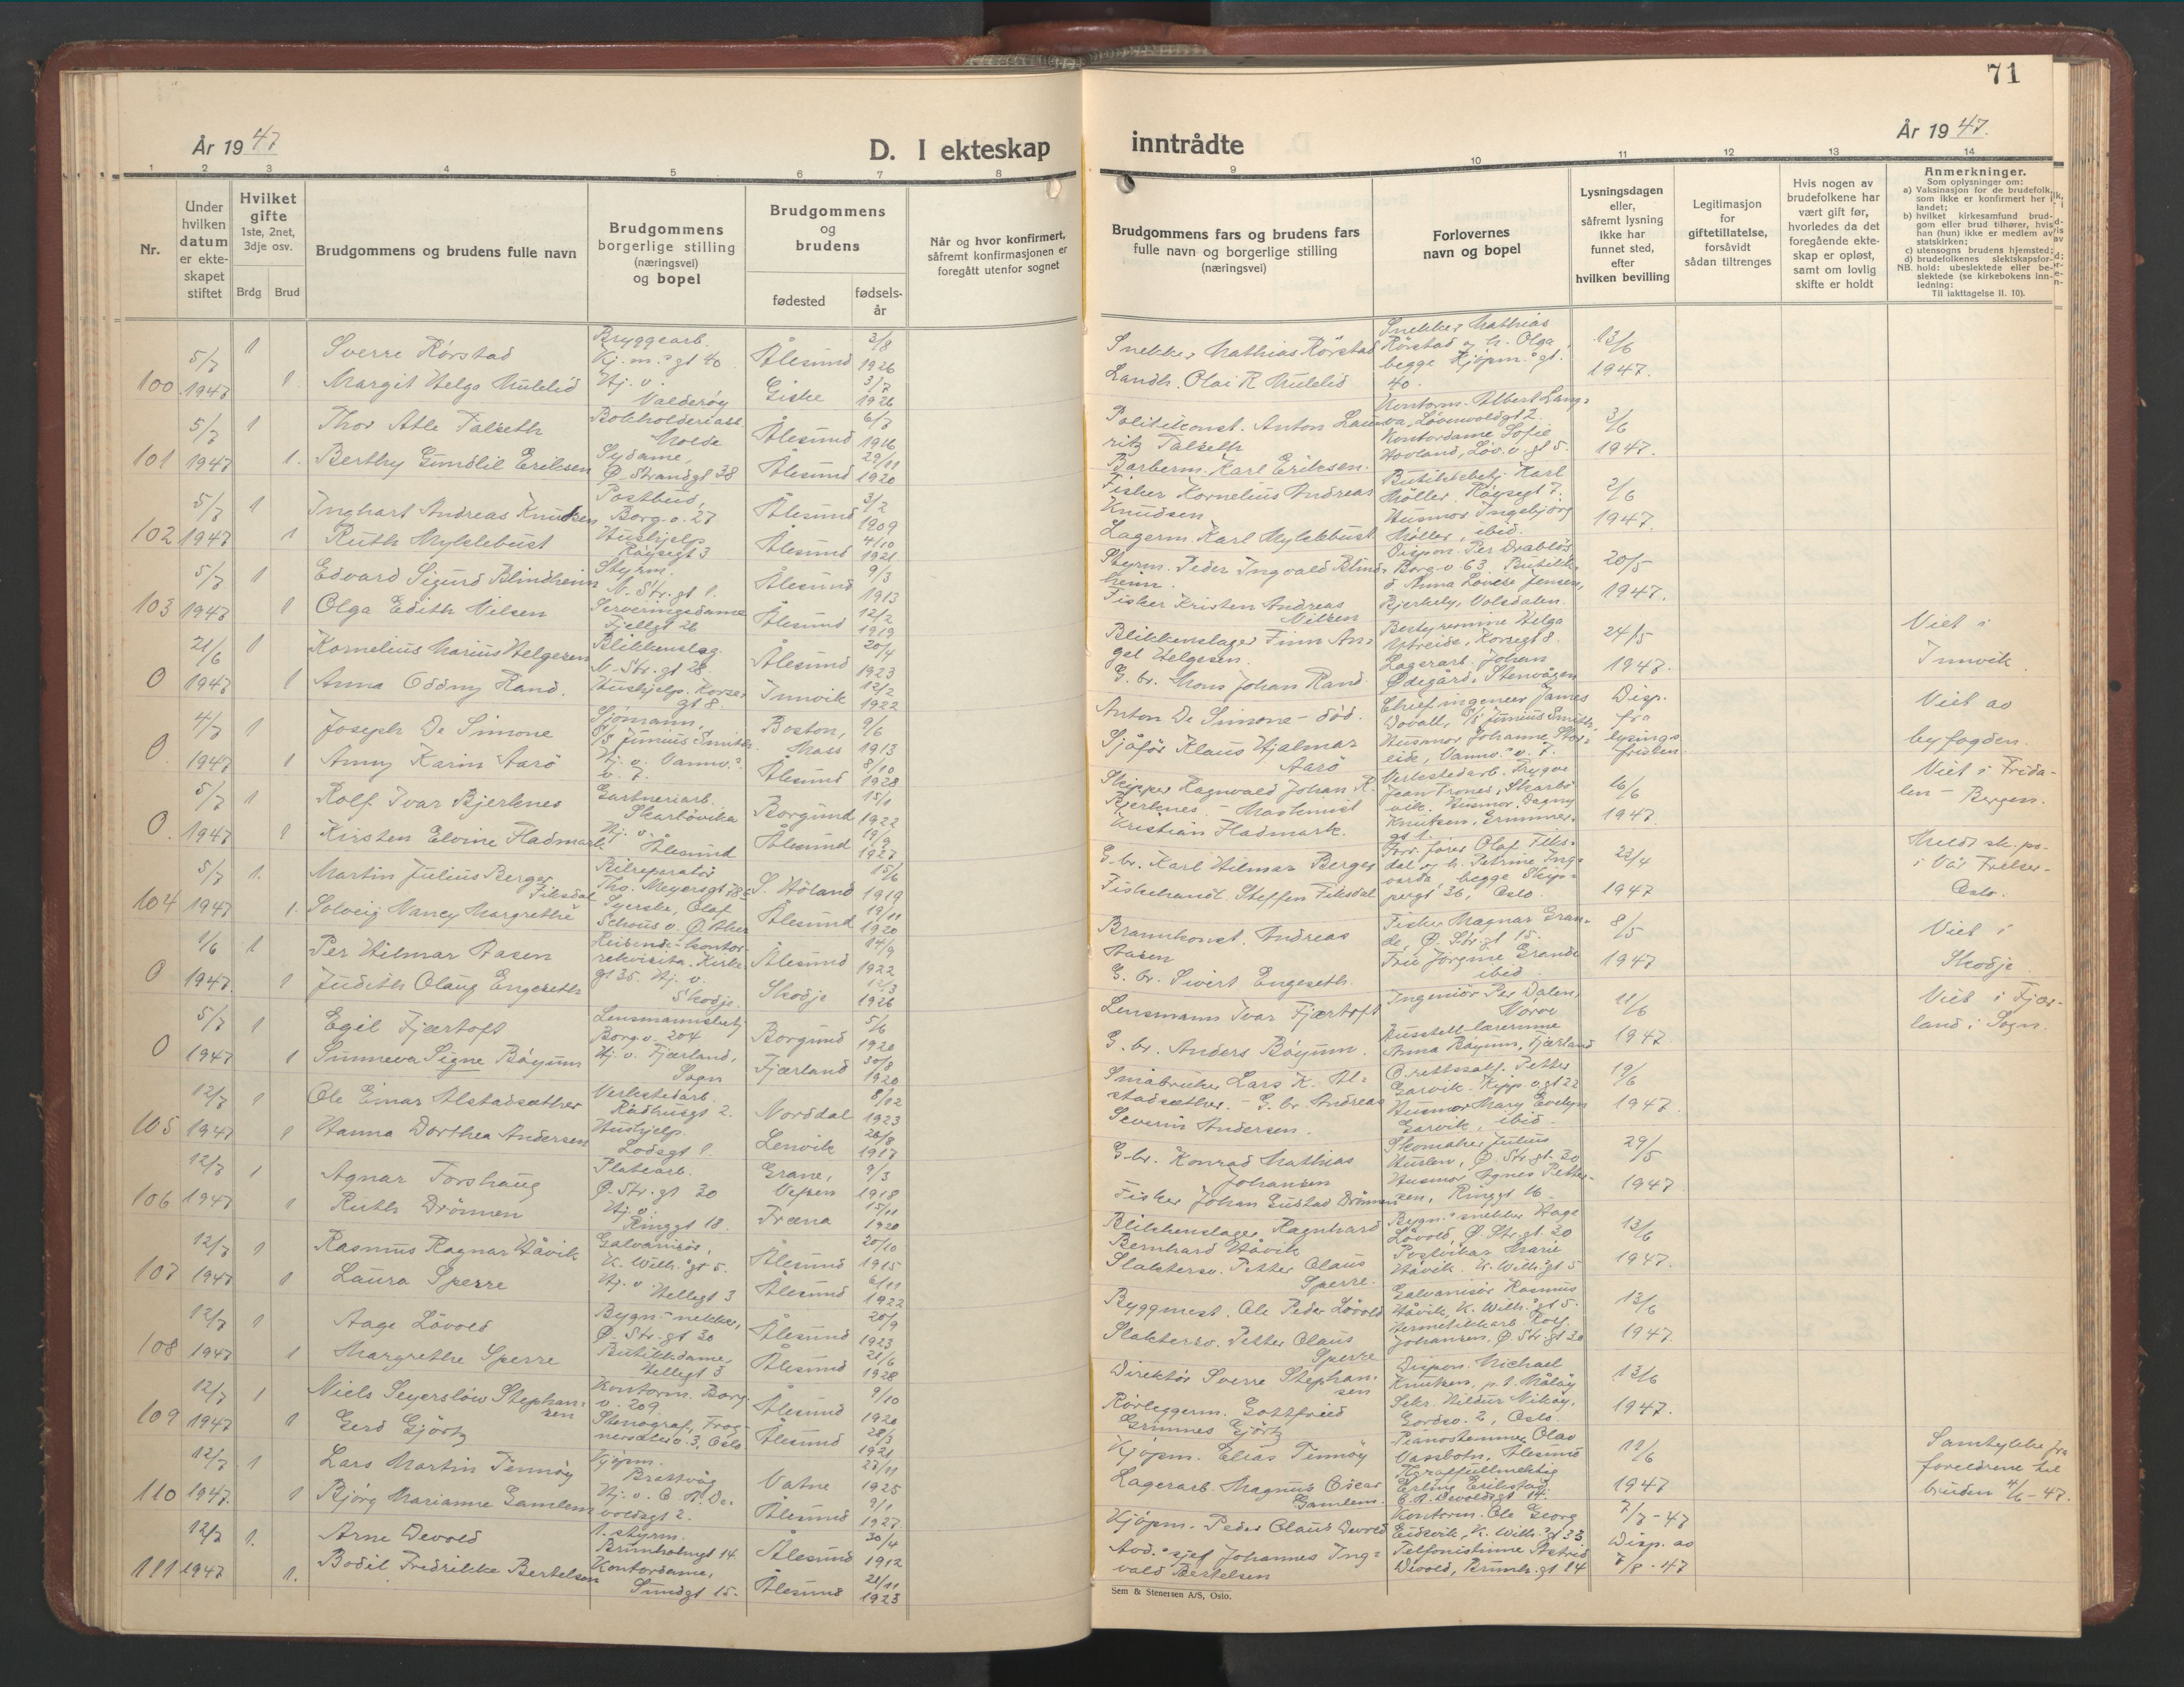 71
År 1947
D. I ekteskap
inntrådte
År 1947.
1 2 3 4 5 6 7 8 9 10 11 12 13 14
Nr.
Under hvilken datum er ekteskapet stiftet
Hvilket gifte 1ste, 2net, 3dje osv.
Brdg Brud
Brudgommens og brudens fulle navn
Brudgommens borgerlige stilling (næringsvei) og bopel
Brudgommens og brudens
fødested
fødsels-år
Når og hvor konfirmert, såfremt konfirmasjonen er foregått utenfor sognet
Brudgommens fars og brudens fars fulle navn og borgerlige stilling (næringsvei)
Forlovernes navn og bopel
Lysningsdagen eller, såfremt lysning ikke har funnet sted, efter hvilken bevilling
Legitimasjon for giftetillatelse, forsåvidt sådan tiltrenges
Hvis nogen av brudefolkene har vært gift før, hvorledes da det foregående ekteskap er opløst, samt om lovlig skifte er holdt
Anmerkninger.
Som oplysninger om:
a) Vaksinasjon for de brudefolk, som ikke er konfirmert her i landet;
b) hvilket kirkesamfund brudgom eller brud tilhører, hvis han (hun) ikke er medlem av statskirken;
c) utensogns brudens hjemsted;
d) brudefolkenes slektskapsforhold: ubeslektede eller beslektede (se kirkebokens innledning:
NB.
Til iakttagelse II. 10).
100 5/7 1947 1 Sverre Rörstad Bryggearb. Kj.m.s gt 40 Ålesund 3/8 1926
1. Margit Helga Mulelid Hj. v. Valderøy Giske 3/7 1926
Snekker Mathias Rörstad
Landh. Olai R Mulelid
Snekker Mathias Rörstad og h. Olga, begge Kjöpm.s gt. 40.
13/6 1947.
101 5/7 1947 1 Thor Atle Talseth Bokholderiass. Molde Ålesund 6/7 1916
1. Berthy Gundlil Eriksen Sydame, Ø. Strandgt 38 Ålesund 29/11 1920
Politikonst. Anton Lauritz Talseth
Barberm. Karl Eriksen.
Kontorm. Albert Langva, Løvenvoldgt 2.
Kontordame Sofie Hovland, Löv.v.gt 5.
3/6 1947.
102 5/7 1947 1 Inghart Andreas Knudsen Postbud, Borg.v. 27 Ålesund 3/2 1909
1 Ruth Myklebust Hushjelp Röysegt 3 Ålesund 4/10 1921
Fisker Kornelius Andreas Knudsen
Lagerm. Karl Myklebust
Butikkbetj. Karl Möller, Röysegt 7.
Husmor Ingebjörg Möller, ibid.
2/6 1947.
103 5/7 1947 1 Edvard Sigurd Blindheim Styrm. N. Str. gt 1. Ålesund 9/3 1913
1 Olga Edith Nilsen Serveringsdame Fjellgt 26 Ålesund 12/2 1919
Styrm. Peder Ingvald Blindheim.
Fisker Kristen Andreas Nilsen
Dispon. Per Drabløs Borg.v 63. Butikkd. Anna Lovise Jensen, Bjerkely, Volsdalen.
20/5 1947.
0 21/6 1947 1 Kornelius Marius Helgesen Blikkenslag. N. Str. gt 28 Ålesund 20/4 1923
1 Anna Oddny Rand. Hushjelp. Korsegt 8. Innvik 12/2 1922
Blikkenslager Finn Angel Helgesen.
G.br. Mons Johan Rand
Bestyrerinne Helga Ytreide, Korsegt 8.
Lagerarb. Johan Ødegård, Stenvågen
24/5 1947.
Viet i Innvik.
0. 4/7 1947 1 Joseph De Simone Sjömann, S/S Junius Smith Boston, Mass 9/6 1913
1 Anny Karin Aarö Hj. v. Vannv.s v. 7. Ålesund 8/10 1928
Anton De Simone - död.
Sjåför Klaus Hjalmar Aarö
Chief ingeneer James Dovall, S/S Junius Smith
Husmor Johanne Skoreide, Vannv.s v. 7.
Disp. fra lysingsfristen
Viet av byfogden.
0. 5/7 1947 1 Rolf Ivar Bjerknes Gartneriarb. Skarbövika Borgund 15/1 1922
1 Kirsten Elvine Fladmark Hj. v. Ålesund Ålesund 19/9 1927
Skipper Ragnvald Johan R. Bjerknes - Maskinist Kristian Fladmark.
Verkstedarb. Trygve Jean Trones, Skarbövik. Husmor Dagny Knutsen, Grimmergt 1.
16/6 1947
Viet i Fridalen - Bergen.
104 5/7 1947 1. Martin Julius Berger Bilreparatör Ths. Meyersgt 78 S. Höland 15/6 1919
1. Solveig Nancy Margrethe Fiksdal Syerske, Olaf Schous v. Ø. Aker Ålesund 19/11 1920
G.br. Karl Hilmar Berger
Fiskehandl. Steffen Fiksdal
Forr.förer Olaf Fiksdal og h. Petrine Ingvarda, begge Skippergt 36, Oslo.
23/4 1947
Meldt sk. po. i Vår Frelser - Oslo.
0 1/6 1947. 1 Per Hilmar Aasen Reisende - kontorrekvisita. Kirkegt 35. Ålesund 14/9 1922
1 Judith Olaug Engeseth Hj. v. Skodje. Skodje 12/3 1926
Brannkonst. Andreas Aasen
G.br. Sivert Engeseth.
Fisker Magnar Grande, Ø. Str. gt 15.
Fru Jörgine Grande ibid
8/5 1947
Viet i Skodje
0 5/7 1947 1 Egil Fjærtoft Lensmannsbetj. Borg.v. 204 Borgund 5/6 1920
1 Sunneva Signe Böyum Hj. v. Fjærland, Sogn Fjærland 30/8 1920
Lensmann Ivar Fjærtoft
G.br. Anders Böyum.
Ingeniör Per Dalen, Norve
Husstell-lærerinne Anna Böyum, Fjærland
11/6 1947
Viet i Fjærland i Sogn.
105 12/7 1947 1 Ole Einar Alstadsæther Verkstedarb. Rådhusgt 2. Norddal 8/12 1923
1 Hanna Dorthea Andersen Hushjelp. Lodsgt 1. Lenvik 26/8 1917
Småbruker Lars K. Alstadsæther. - G.br. Andreas Severin Andersen.
O.rettssakf. Petter Garvik. Kipp.v.gt 22
Husmor Mary Evelyn Garvik, ibid.
19/6 1947.
106 12/7 1947 1 Agnar Forshaug Platearb. Ø. Str. gt 30 Grane, Vefsen 9/3 1918
1 Ruth Drönnen Hj. v. Ringgt 18. Fræna 15/11 1920
G.br. Konrad Mathias Johansen
Fisker Johan Gustad Drönnen
Skomaker Julius Huslen, Ø. Str. gt. 30
Husmor Agnes Pettersen, Ringgt 16
29/5 1947
107 12/7 1947 1 Rasmus Ragnar Håvik Galvanisör, K. Wilh.s gt 5. Ålesund 20/10 1915
1 Laura Sperre Hj. v. Hellegt 3 Ålesund 6/11 1922
Blikkenslager Ragnhard Bernhard Håvik
Slaktersv. Petter Claus Sperre.
Bygn.s snekker Aage Lövold, Ø. Str. gt. 30
Postvikar Marie Håvik. K. Wilh.s gt 5
13/6 1947.
108 12/7 1947 1 Aage Lövold Bygn.snekker, Ø. Str. gt 30 Ålesund 20/9 1923
1 Margrethe Sperre Butikkdame, Hellegt 3 Ålesund 21/6 1928
Byggmest. Ole Peder Lövold
Slaktersv. Petter Claus Sperre
Galvanisör Rasmus Håvik, K. Wilh.s gt 5.
Hermetikkarb. Rolf Johansen. Ø. Str. gt 30
13/6 1947.
109 12/7 1947 1 Niels Seyerslöw Stephansen Kontorm. Borg.v. 209 Ålesund 9/10 1920
1 Gerd Gjörtz Stenograf, Frognersæterv. 3, Oslo Ålesund 28/3 1921
Direktör Sverre Stephansen
Rörleggerm. Gottfried Grimnes Gjörtz
Dispon. Michael Knutsen, p.t. Måløy
Sekr. Hildur Nikøy, Gordsv. 2, Oslo.
13/6 1947.
110 12/7 1947. 1 Lars Martin Tennöy Kjöpm. Brattvåg Vatne 27/11 1925
1 Björg Marianne Gamlem Hj. v. O. A. Devoldsgt 2. Ålesund 9/1 1927.
Kjöpm. Elias Tennöy
Lagerarb. Magnus Oscar Gamlem.
Pianostemmer Olav Vassbotn, Ålesund
Telgraffullmektig Erling Erikstad, O. A. Devoldsgt 14.
12/6 1947
Samtykke fra foreldrene til bruden 4/6 - 47.
111 12/7 1947 1. Arne Devold 1. styrm. Brunholmgt 14 Ålesund 30/4 1912
1. Bodil Fredrikke Bertelsen Kontordame, Sundgt 15. Ålesund 21/11 1923
Kjöpm. Peder Claus Devold
Avd.s sjef Johannes Ingvald Bertelsen
Kontorm. Ole Georg Eidsvik, K. Wilh.s gt 33
Telfonistinne Astrid Devold, Brunh. gt 14
7/7 - 47
Disp. av 7/8 - 47
Sem & Stenersen A/S, Oslo.